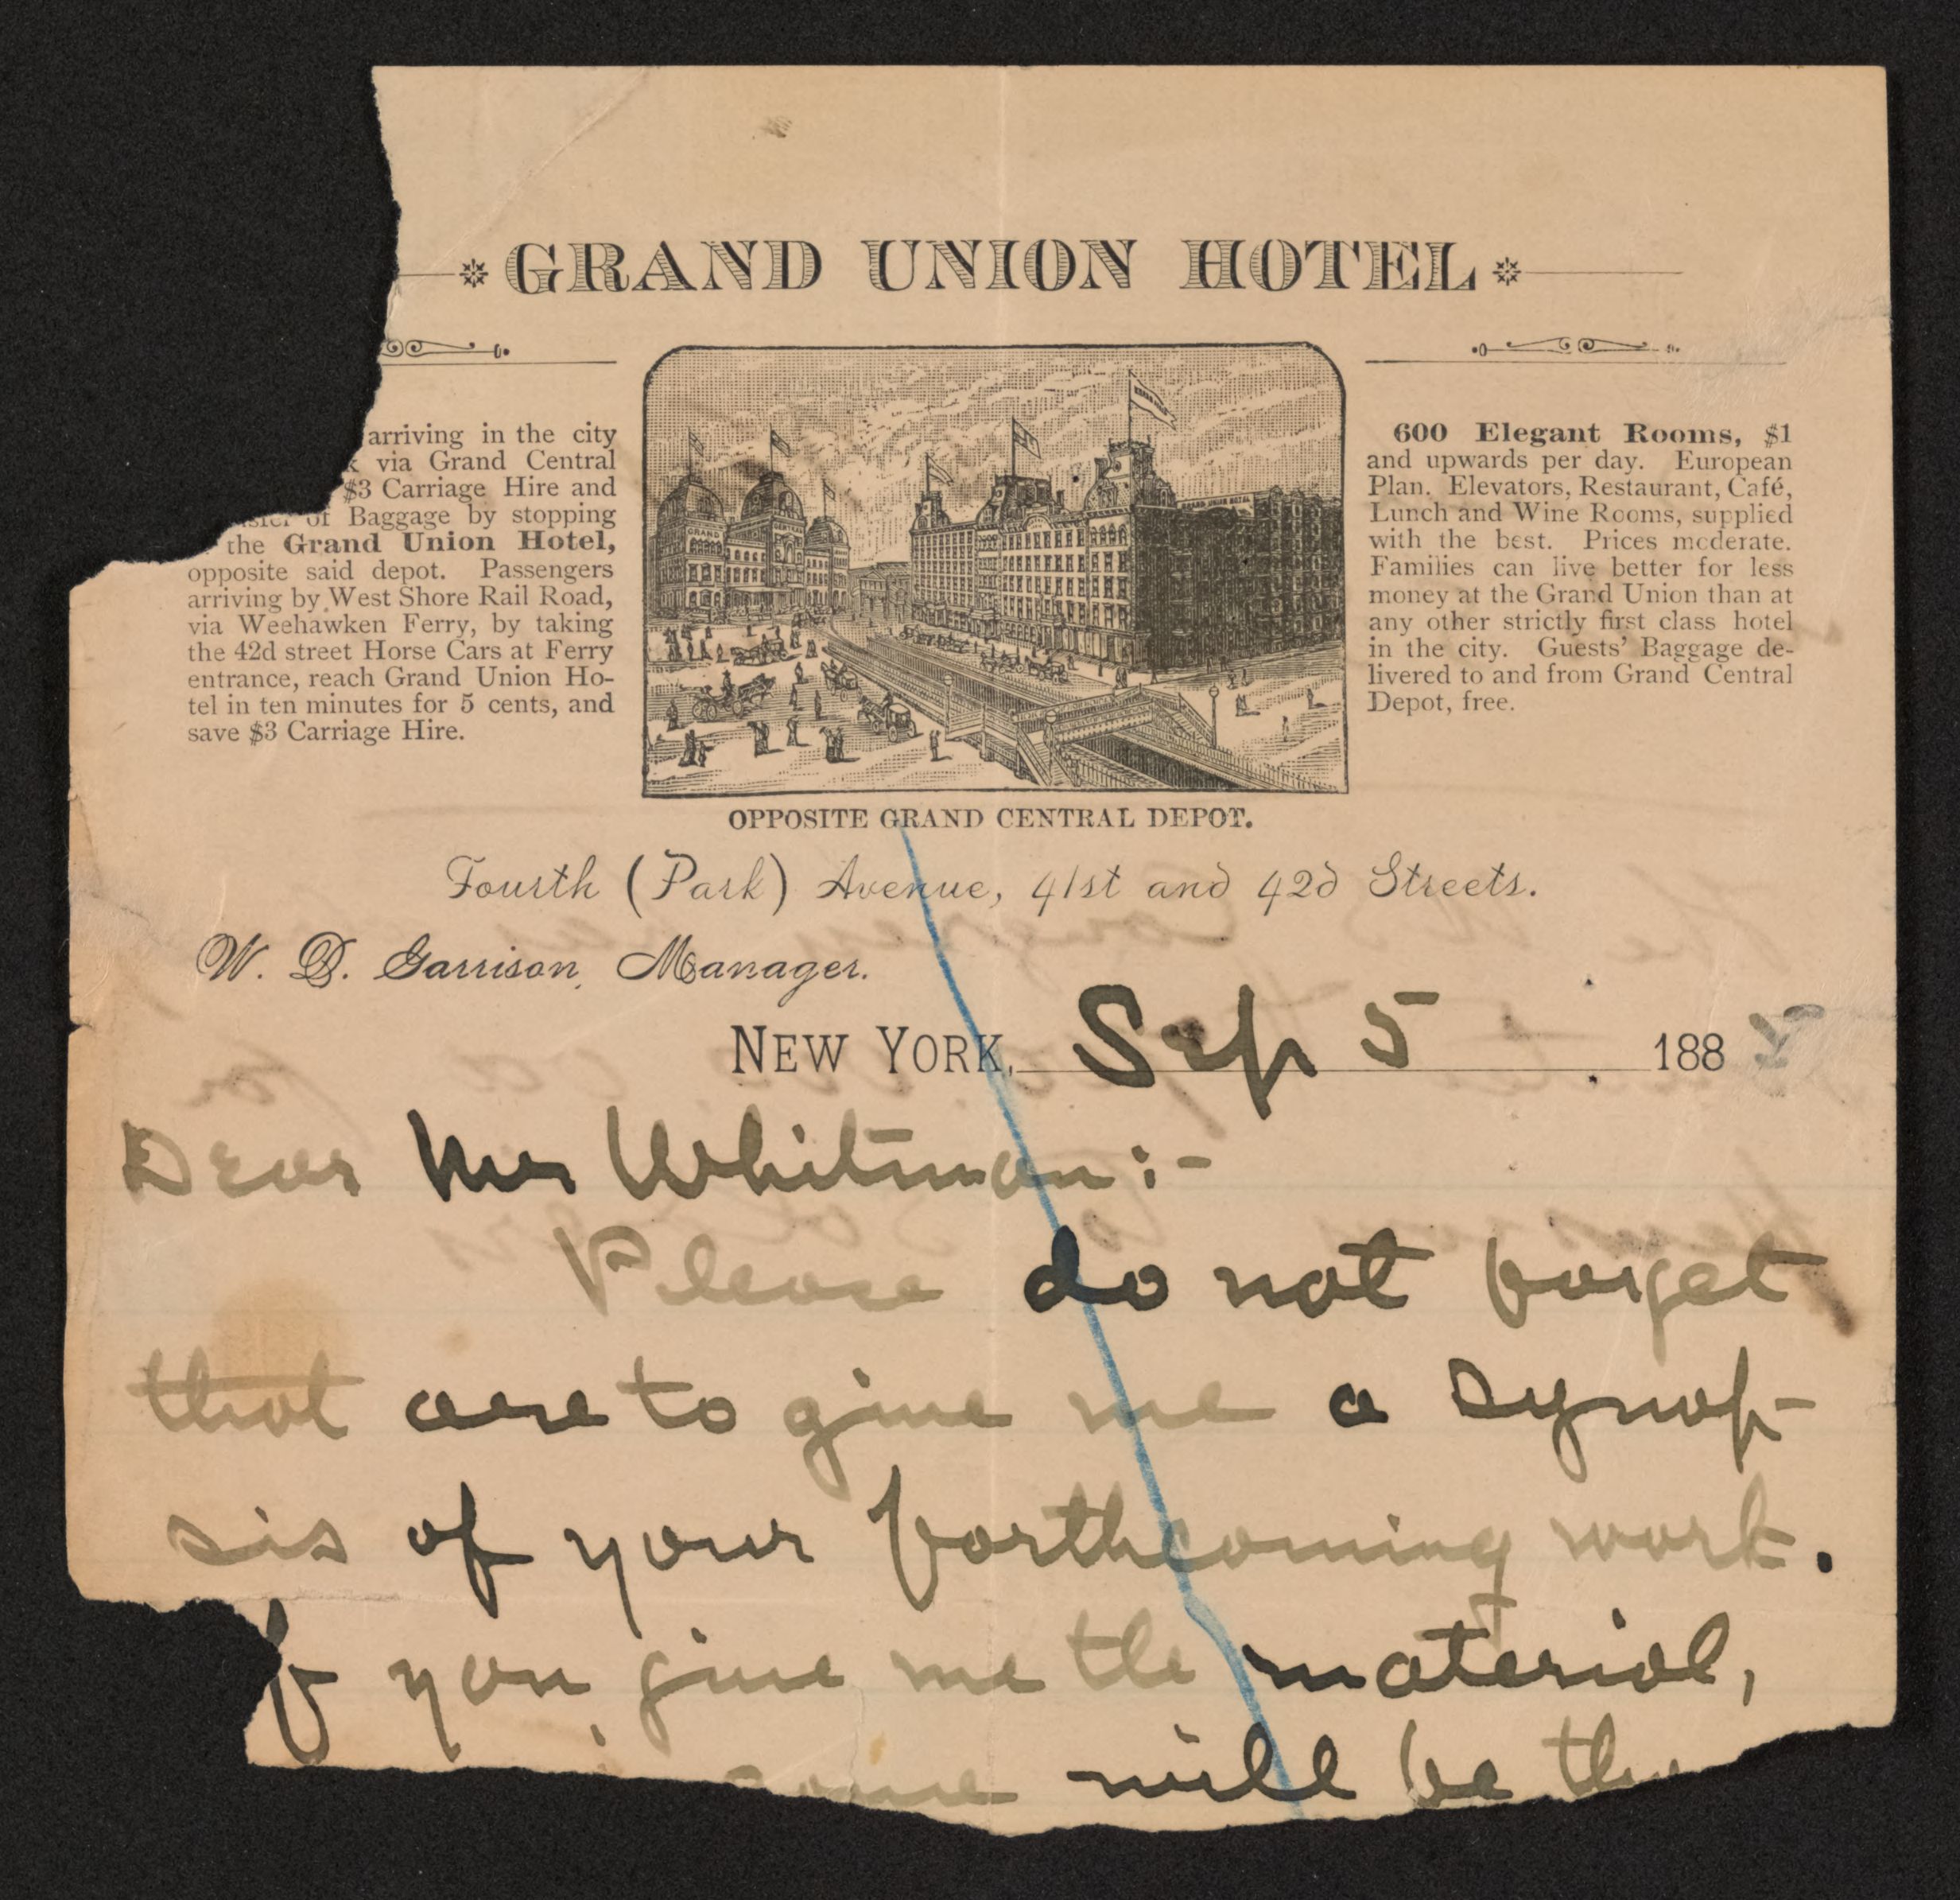 GRAND UNION HOTEL
arriving in the city
via Grand Central
$3 Carriage Hire and
of Baggage by stopping
the Grand Union Hotel,
opposite said depot. Passengers
arriving by West Shore Rail Road,
via Weehawken Ferry, by taking
the 42d street Horse Cars at Ferry
entrance, reach Grand Union Ho-
tel in ten minutes for 5 cents, and
save $3 Carriage Hire.
600 Elegant Rooms, $1
and upwards per day. European
Plan. Elevators, Restaurant, Café,
Lunch and Wine Rooms, supplied
with the best. Prices moderate.
Families can live better for less
money at the Grand Union than at
any other strictly first class hotel
in the city. Guests' Baggage de-
livered to and from Grand Central
Depot, free.
GRAND
GRAND UNION HOTEL
OPPOSITE GRAND CENTRAL DEPOT.
Fourth (Park) Avenue, 41st and 42d Streets.
W. D. Garrison, Manager.
NEW YORK, Sep 5 1885
Dear Mr Whitman:-
Please do not forget
that are to give me a synop-
sis of your forthcoming work.
f you give me the material,
some will be